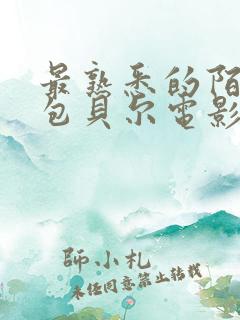 最熟悉的陌
包貝尔電影
師小札
未经同意禁止转载